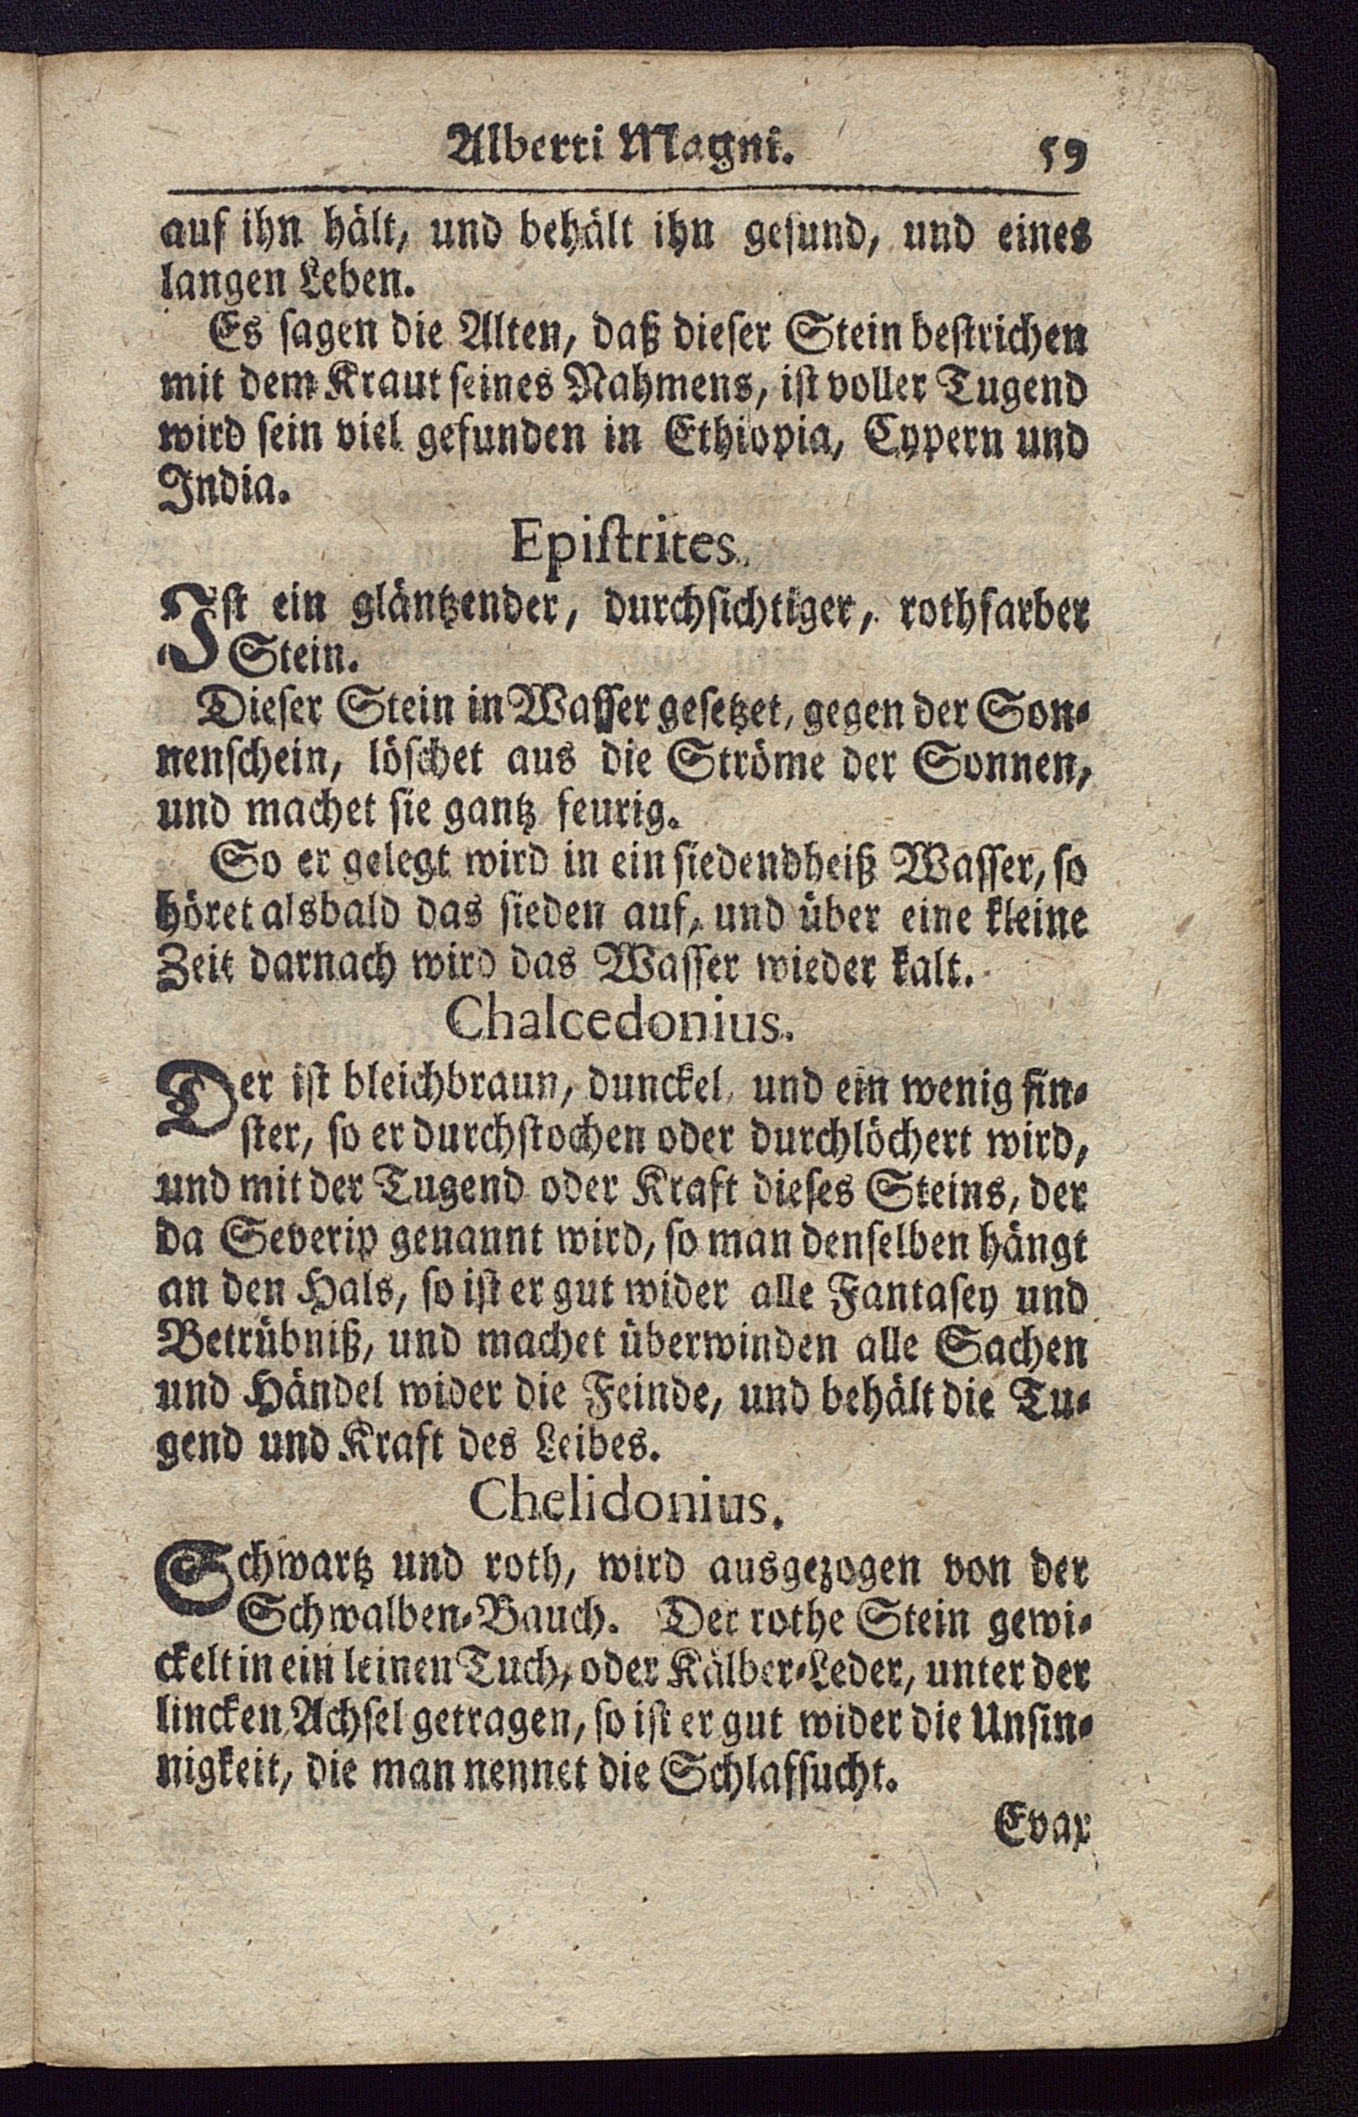 Alberti Magni. 59
auf ihn hält, und behält ihn gesund, und eines
langen Leben.
Es sagen die Alten, daß dieser Stein bestrichen
mit dem Kraut seines Nahmens, ist voller Tugend
wird sein viel gefunden in Ethiopia, Cypern und
India.
Epistrites.
Ist ein gläntzender, durchsichtiger, rothfarber
Stein.
Dieser Stein in Wasser gesetzet, gegen der Son-
nenschein, löschet aus die Ströme der Sonnen,
und machet sie gantz feurig.
So er gelegt wird in ein siedendheiß Wasser, so
höret alsbald das sieden auf, und über eine kleine
Zeit darnach wird das Wasser wieder kalt.
Chalcedonius.
Der ist bleichbraun, dunckel, und ein wenig fin-
ster, so er durchstochen oder durchlöchert wird,
und mit der Tugend oder Kraft dieses Steins, der
da Severip genannt wird, so man denselben hängt
an den Hals, so ist er gut wider alle Fantasey und
Betrübniß, und machet überwinden alle Sachen
und Händel wider die Feinde, und behält die Tu-
gend und Kraft des Leibes.
Chelidonius.
Schwartz und roth, wird ausgezogen von der
Schwalben-Bauch. Der rothe Stein gewi-
ckelt in ein leinen Tuch, oder Kälber-Leder, unter der
lincken Achsel getragen, so ist er gut wider die Unsin-
nigkeit, die man nennet die Schlafsucht.
Evax